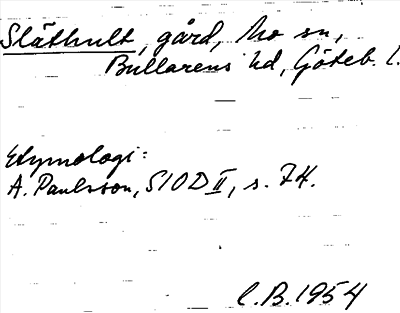 Släthult, gård, Mo sn,
Bullarens hd, Göteb. l.
Etymologi:
A. Paulsson, SIOD II, s. 74.
C.B. 1954